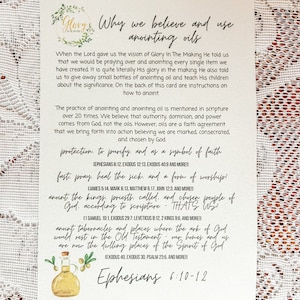 Glory's
Why we believe and use
anointing oils
When the Lord gave us the vision of Glory In The Making He told us
that we would be praying over and anointing every single item we
have created. It is quite literally His glory in the making. He also told
us to give away small bottles of anointing oil and teach His children
about the significance. On the back of this card are instructions on
how to anoint.
The practice of anointing and anointing oil is mentioned in scripture
over 20 times. We believe that authority, dominion, and power
comes from God, not the oils. However, oils are a faith agreement
that we bring forth into action believing we are marked, consecrated,
and chosen by God.
protection to purify and as a symbol of faith
(EPHESIANS 6:12, EXODUS 12:13, EXODUS 40:9 AND MORE!)
fast, pray, heal the sick, and a form of worship!
(JAMES 5:14, MARK 6:13, MATTHEW 6:17, JOHN 12:3, AND MORE!)
anoint the kings, priests, called, and chosen people of
God, according to scripture - THAT'S YOU!
(1 SAMUEL 10:1, EXODUS 29:7, LEVITICUS 8:12, 2 KINGS 9:6, AND MORE!)
anoint tabernacles and places where the ark of God
would rest in the Old Testament - our homes and us
are now the dwelling places of the Spirit of God
(EXODUS 40, EXODUS 30, PSALM 23:5, AND MORE!)
Ephesians 6:10-12